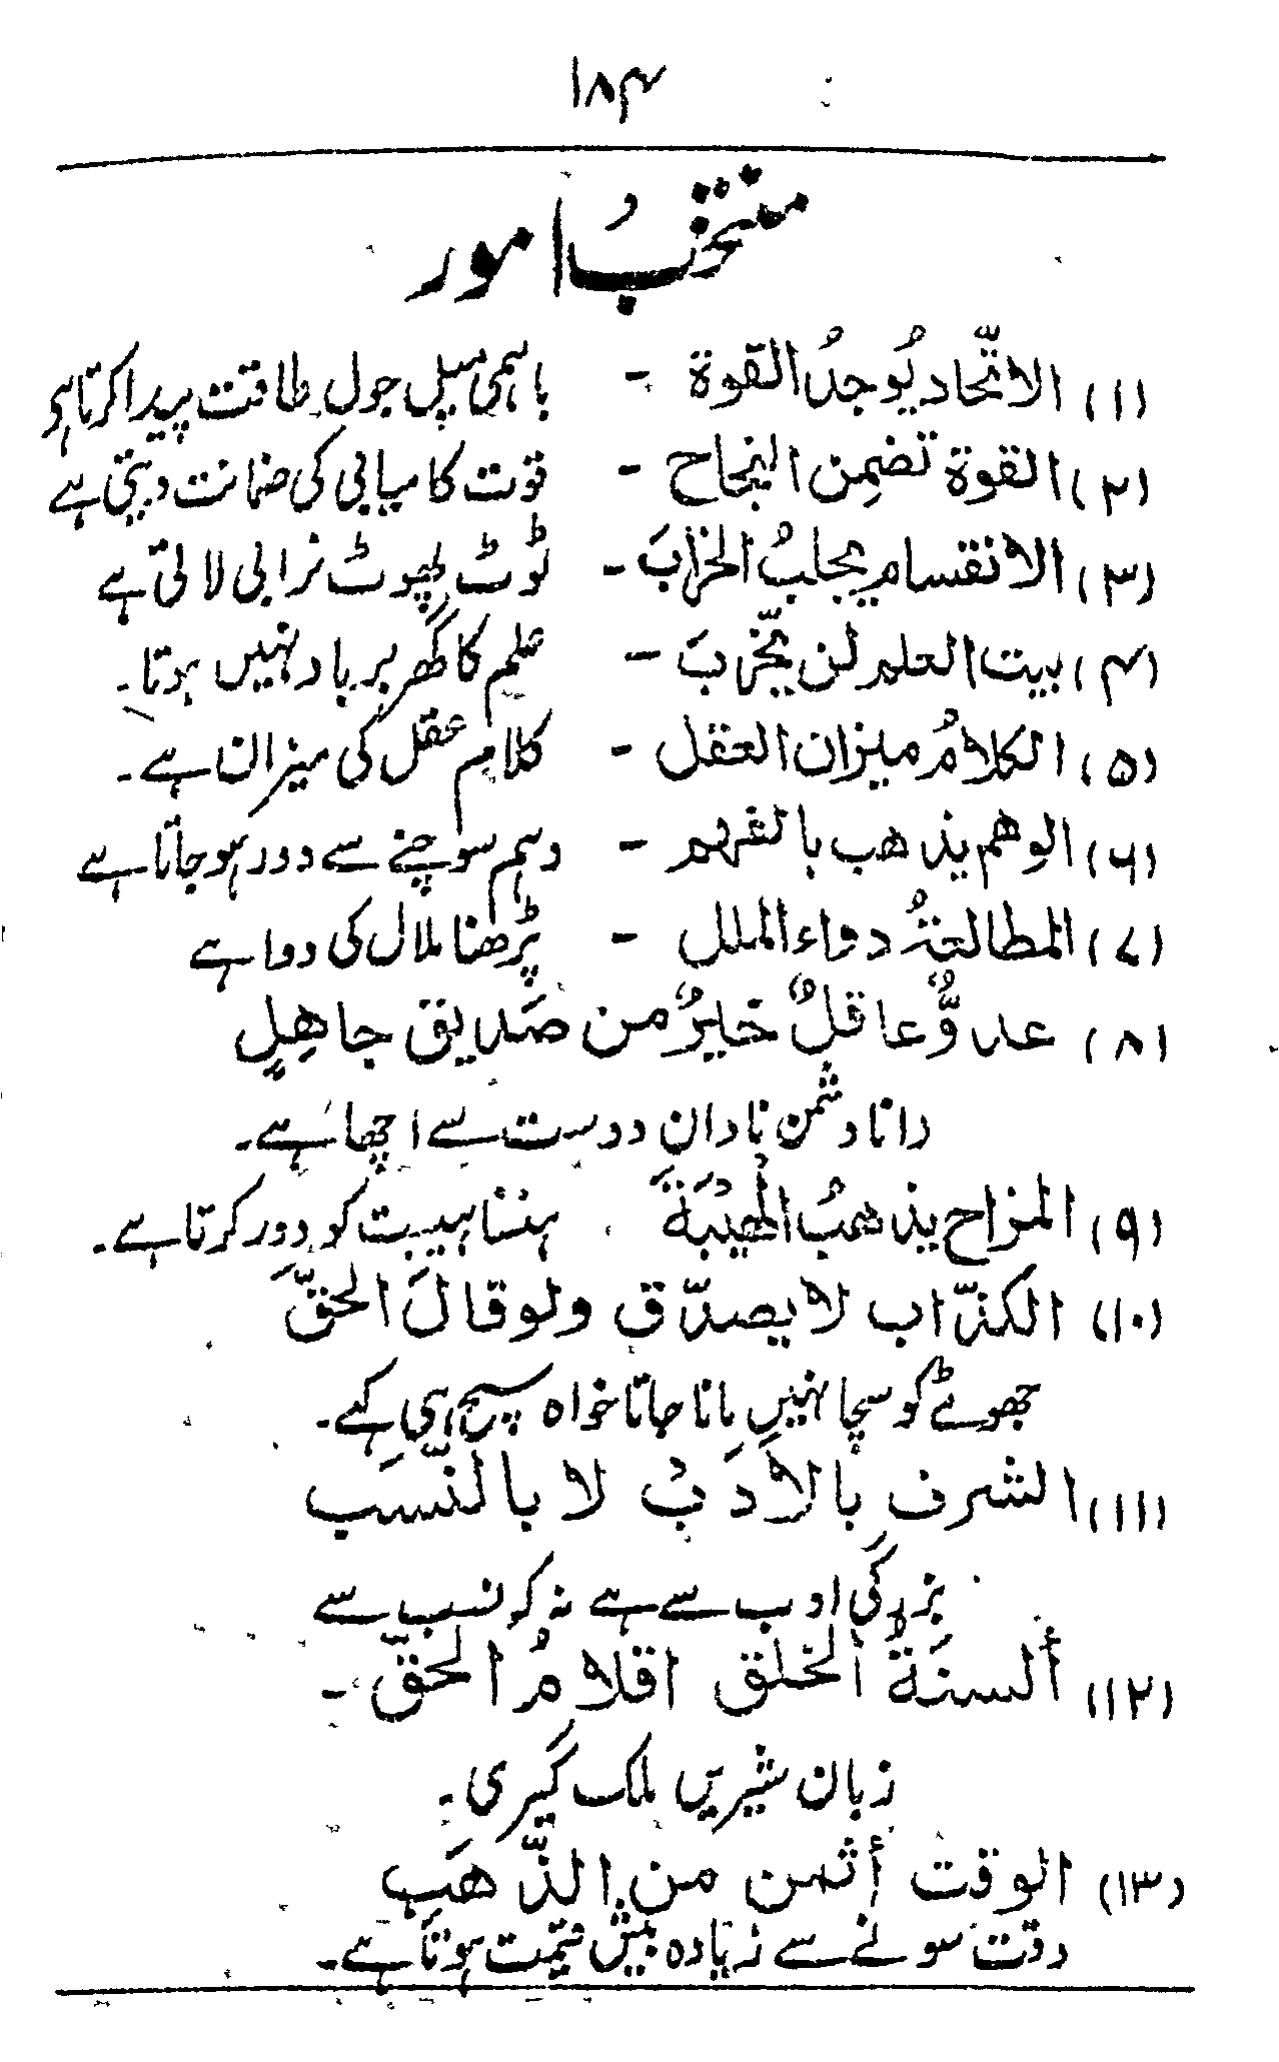 ۱۸۴
منتخب امور
(۱) الاتّحاد يُوجدُ القوة - باہمی میل جول طاقت پیدا کرتا ہو
(۲) القوة تضمِن النجاح - قوت کامیابی کی ضمانت دیتی ہے
(۳) الانقسام يجلبُ الخرابَ - ٹوٹ پھوٹ خرابی لاتی ہے
(۴) بيت العلم لن يخّربَ - علم کا گھر برباد نہیں ہوتا۔
(۵) الكلامُ ميزان العقل - کلام عقل کی میزان ہے۔
(۶) الوهم يذهب بالفهم - وہم سوچنے سے دور ہو جاتا ہے
(۷) المطالعةُ دواء الملل - پڑھنا ملال کی دوا ہے
(۸) عدوٌّ عاقلٌ خيرٌ من صَديق جاهِلٍ
دانا دشمن نادان دوست سے اچھا ہے۔
(۹) المزاح يذهبُ المُهيْبَةَ ہنسنا ہیبت کو دور کرتا ہے۔
(۱۰) الكذّاب لا يصدّق ولو قالَ الحقَّ
جھوٹے کو سچا نہیں مانا جاتا خواہ سچ ہی کہے۔
(۱۱) الشرف بالادَبُ لا بالنّسَب
بزرگی ادب سے ہے نہ کہ نسب سے
(۱۲) ألسنَةُ الخلق اقلامُ الحقّ -
زبان شیریں ملک گیری۔
(۱۳) الوقت أثمن من الذّهَبِ
وقت سونے سے زیادہ بیش قیمت ہوتا ہے۔